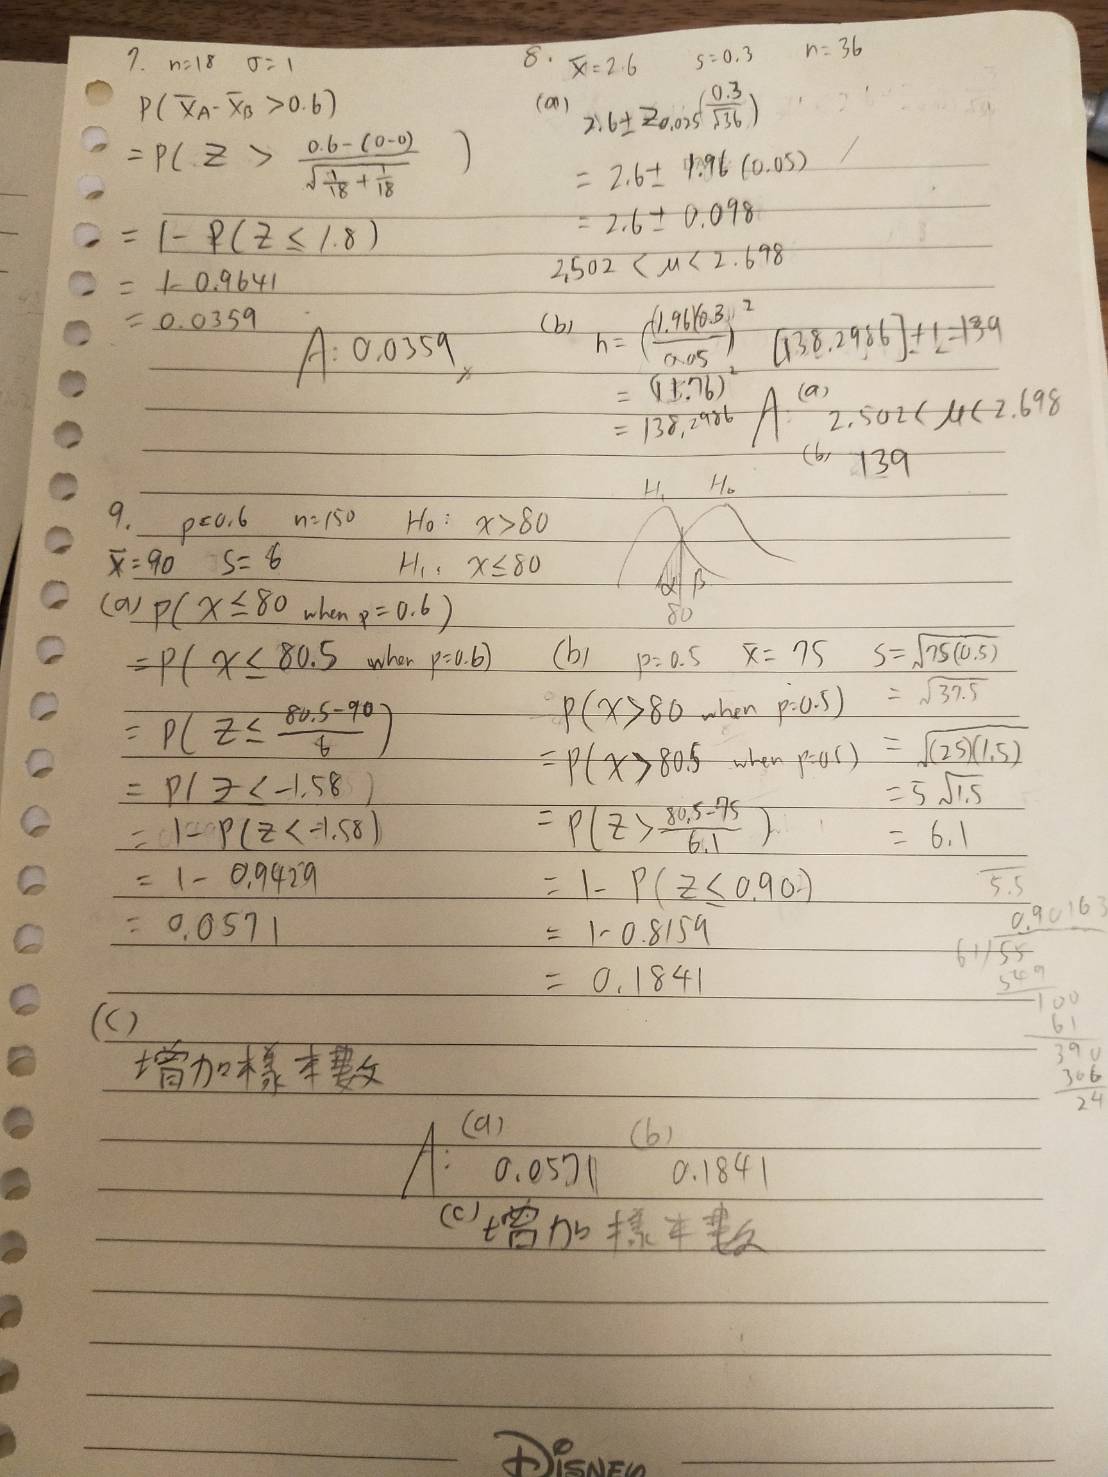 7. n=18 σ=1
P(x̄A - x̄B > 0.6)
= P( Z > (0.6-(0-0))/√(1/18 + 1/18) )
= 1 - P(Z ≤ 1.8)
= 1- 0.9641
= 0.0359
A: 0.0359
8. x̄=2.6 s=0.3 n=36
(a) 2.6 ± Z0.025(0.3/√36)
= 2.6 ± 1.96 (0.05)
= 2.6 ± 0.098
2.502 < μ < 2.698
(b) n = ((1.96)(0.3)/0.05)² [138.2986]+1=139
= (11.76)²
= 138.2986
A: (a) 2.502 < μ < 2.698
(b) 139
9. p=0.6 n=150 H0: x>80
x̄=90 S=6 H1: x≤80
H1 H0
α β
80
(a) P(x≤80 when p=0.6)
= P( x ≤ 80.5 when p=0.6)
= P( Z ≤ (80.5-90)/6 )
= P( Z < -1.58 )
= 1- P(Z < -1.58)
= 1 - 0.9429
= 0.0571
(b) p=0.5 x̄=75 S=√75(0.5)
= √37.5
= √(25)(1.5)
= 5√1.5
= 6.1
P(x>80 when p=0.5)
= P(x>80.5 when p=0.5)
= P(Z > (80.5-75)/6.1 )
= 1- P(Z ≤ 0.90)
= 1- 0.8159
= 0.1841
5.5
0.90163
61/55
549
100
61
390
366
24
(C)
增加樣本數
A: (a) 0.0571 (b) 0.1841
(c) 增加樣本數
DISNEY